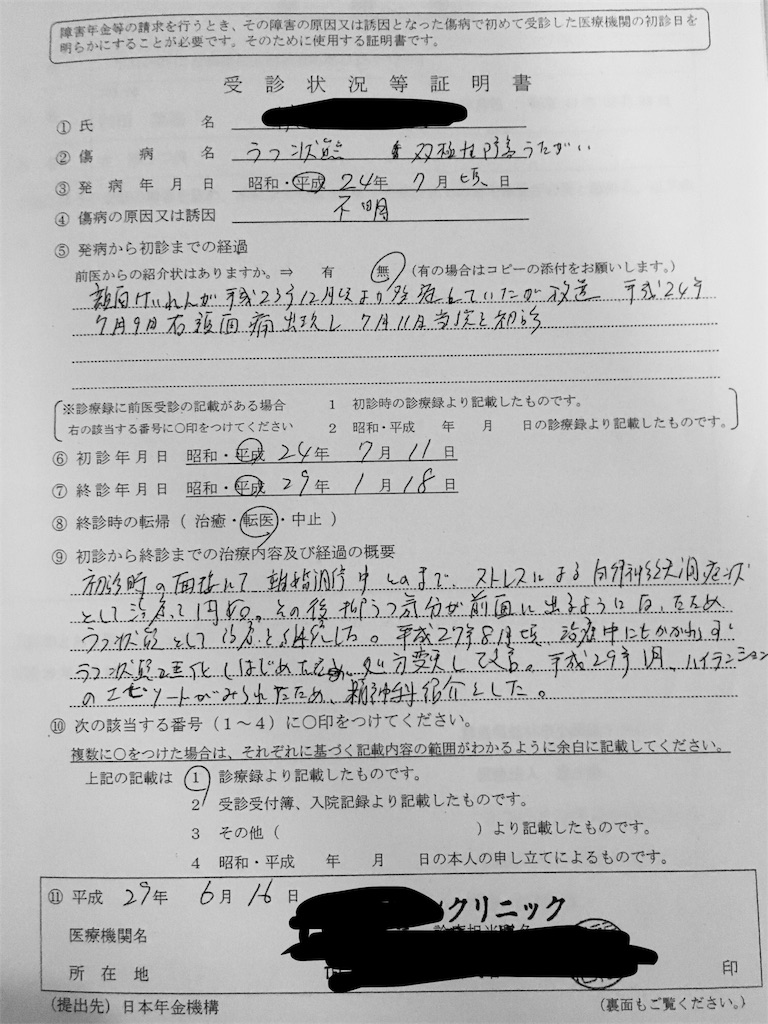 障害年金等の請求を行うとき、その障害の原因又は誘因となった傷病で初めて受診した医療機関の初診日を
明らかにすることが必要です。そのために使用する証明書です。
受診状況等証明書
① 氏名
② 傷病名 うつ状態 双極性障害うたがい
③ 発病年月日 昭和・平成 24年 7月頃 日
④ 傷病の原因又は誘因 不明
⑤ 発病から初診までの経過
前医からの紹介状はありますか。⇒ 有 無 (有の場合はコピーの添付をお願いします。)
顔面けいれんが平成23年12月頃より発症していたが放置 平成24年
7月9日右顔面痛出現し 7月11日当院を初診
※診療録に前医受診の記載がある場合 1 初診時の診療録より記載したものです。
右の該当する番号に〇印をつけてください 2 昭和・平成 年 月 日の診療録より記載したものです。
⑥ 初診年月日 昭和・平成 24年 7月 11日
⑦ 終診年月日 昭和・平成 29年 1月 18日
⑧ 終診時の転帰 ( 治癒・転医・中止 )
⑨ 初診から終診までの治療内容及び経過の概要
初診時の面接にて 離婚調停中とのまで、ストレスによる自律神経失調症状
として治療を開始。その後 抑うつ気分が前面に出るようになったため
うつ状態として治療を継続した。平成27年8月頃、治療中にもかかわらず
うつ状態悪化しはじめたため、処方変更して改善。平成29年1月、ハイテンション
のエピソードがみられたため、精神科紹介とした。
⑩ 次の該当する番号(1~4)に〇印をつけてください。
複数に〇をつけた場合は、それぞれに基づく記載内容の範囲がわかるように余白に記載してください。
上記の記載は 1 診療録より記載したものです。
2 受診受付簿、入院記録より記載したものです。
3 その他( )より記載したものです。
4 昭和・平成 年 月 日の本人の申し立てによるものです。
⑪ 平成 29年 6月 16日
クリニック
医療機関名
所在地 印
(提出先)日本年金機構 (裏面もご覧ください。)